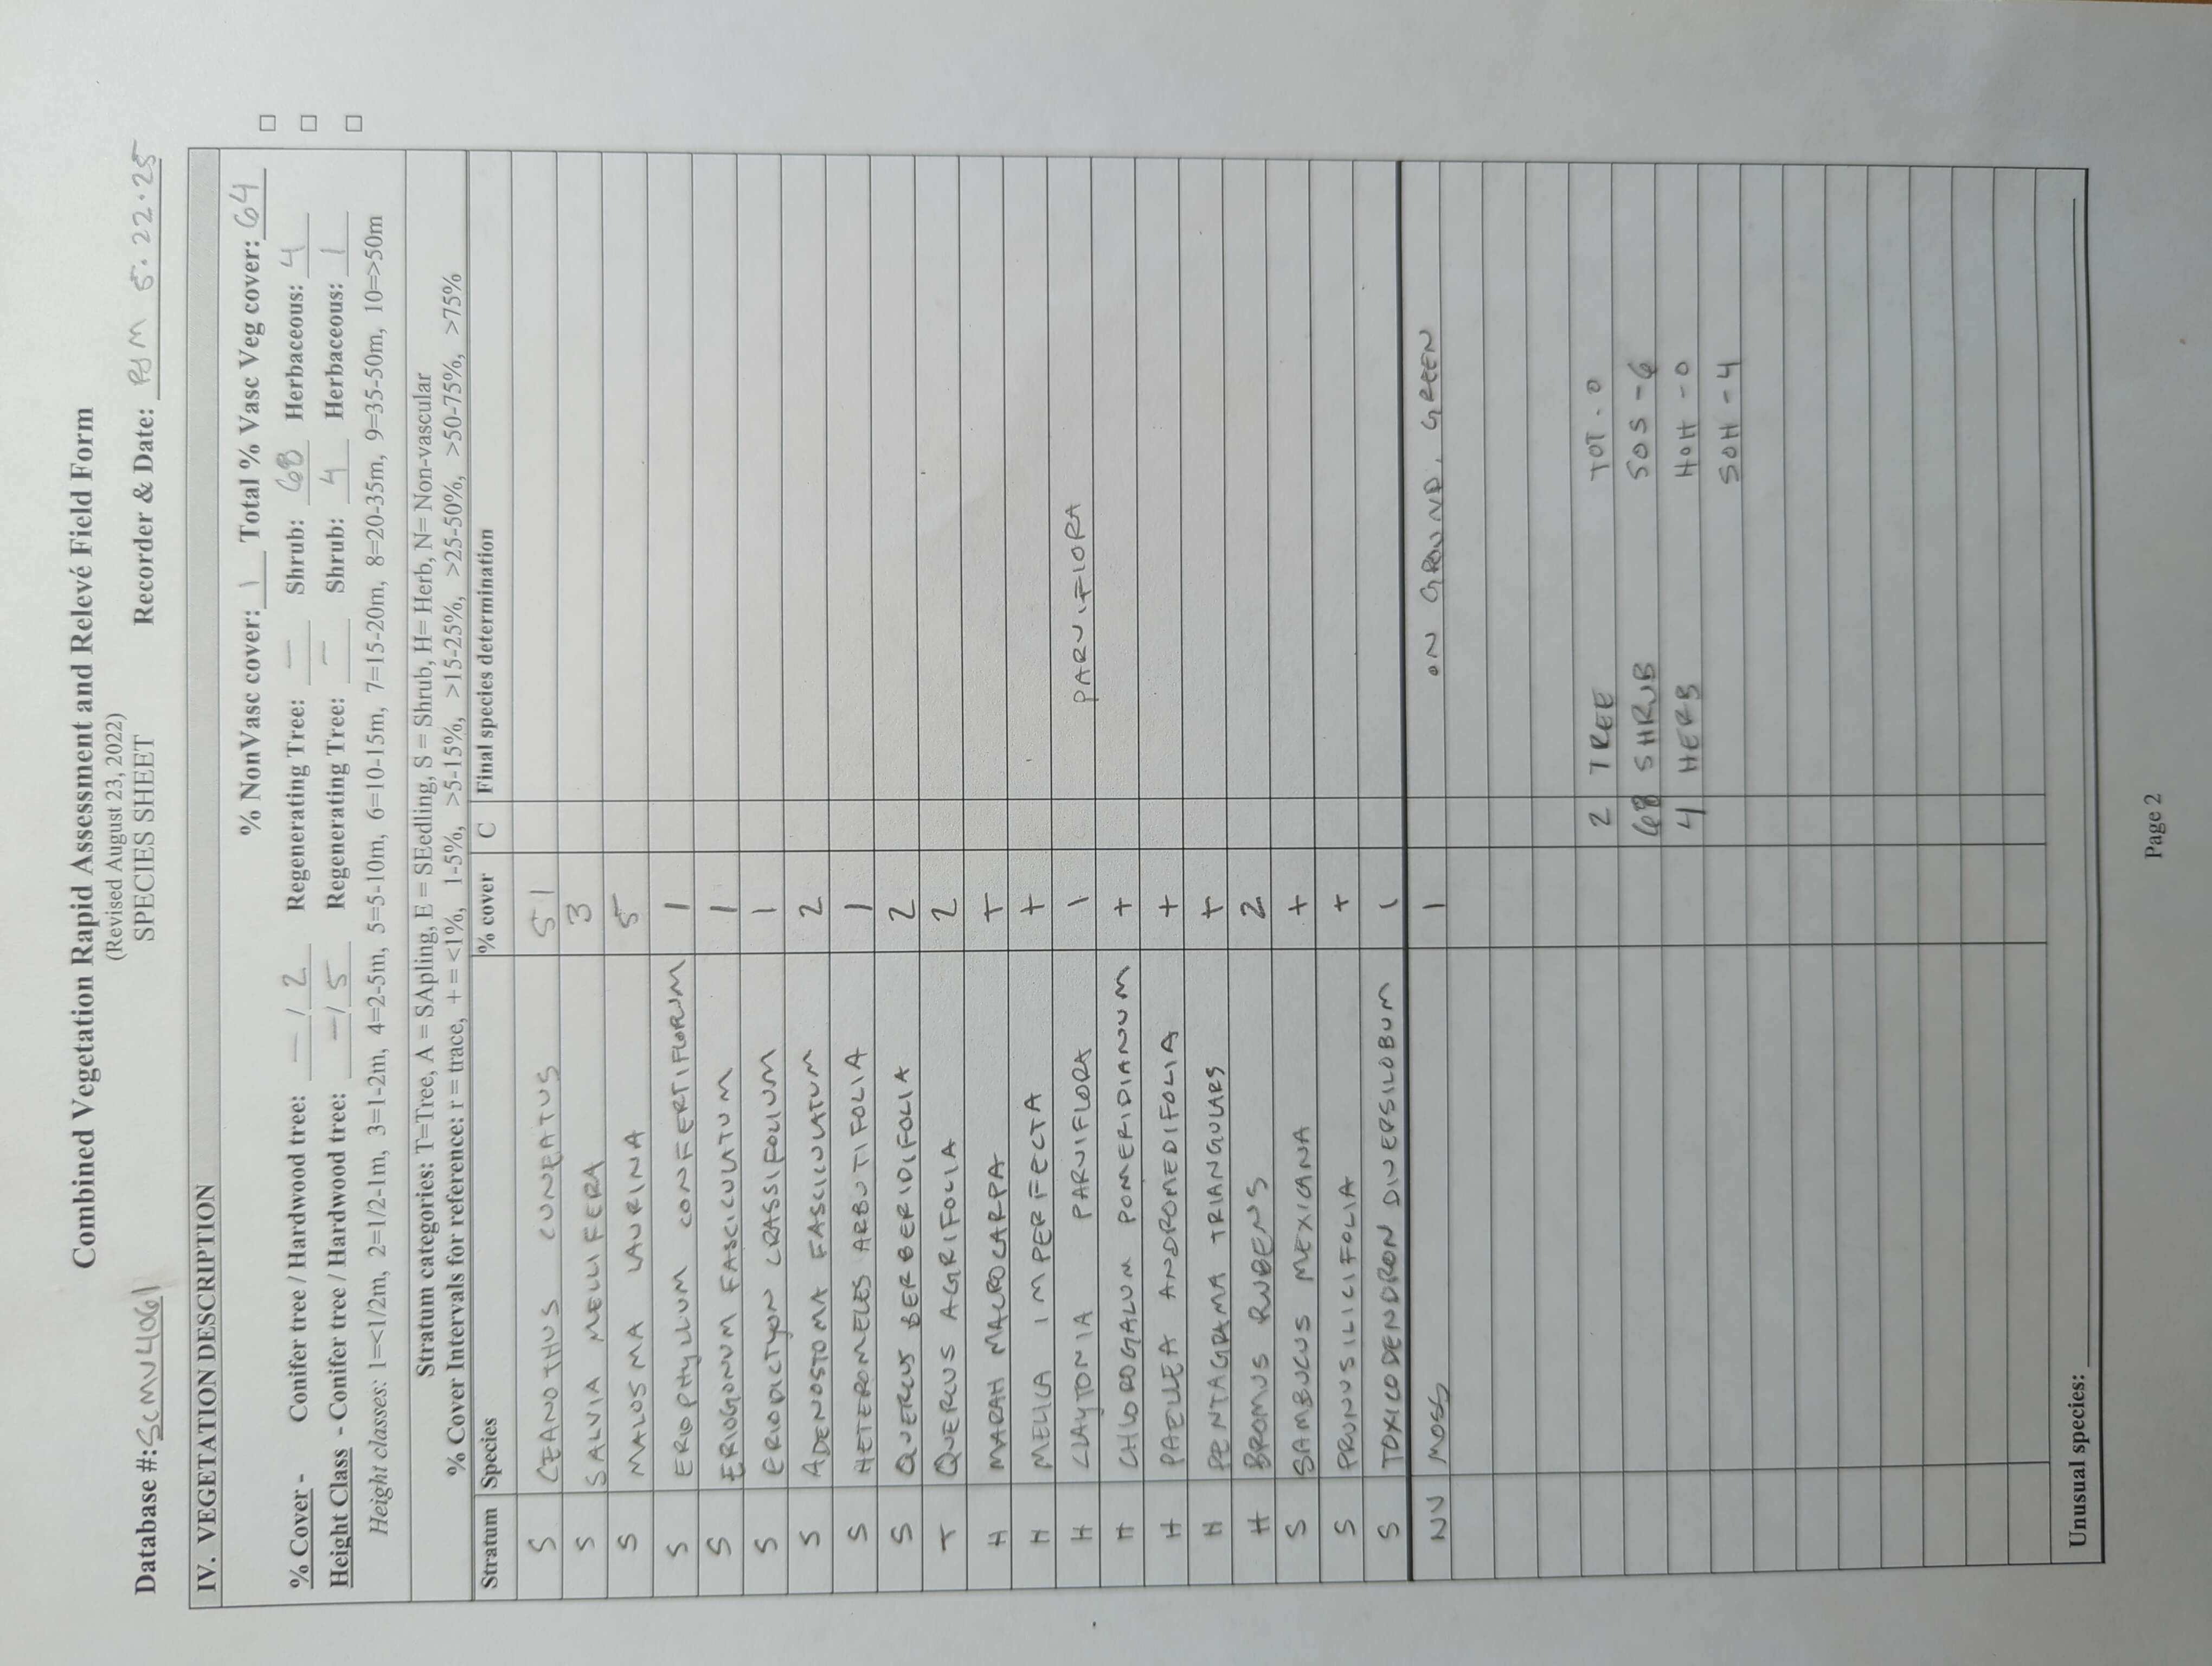 Combined Vegetation Rapid Assessment and Relevé Field Form
(Revised August 23, 2022)
SPECIES SHEET
Database #: SCMNU4061 Recorder & Date: RJM 5.22.25
IV. VEGETATION DESCRIPTION
% NonVasc cover: 1 Total % Vasc Veg cover: 64
% Cover - Conifer tree / Hardwood tree: — / 2 Regenerating Tree: — Shrub: 68 Herbaceous: 4 □
Height Class - Conifer tree / Hardwood tree: — / 5 Regenerating Tree: — Shrub: 4 Herbaceous: 1 □
Height classes: 1=<1/2m, 2=1/2-1m, 3=1-2m, 4=2-5m, 5=5-10m, 6=10-15m, 7=15-20m, 8=20-35m, 9=35-50m, 10=>50m
Stratum categories: T=Tree, A = SApling, E = SEedling, S = Shrub, H= Herb, N= Non-vascular
% Cover Intervals for reference: r = trace, + = <1%, 1-5%, >5-15%, >15-25%, >25-50%, >50-75%, >75%
Stratum Species % cover C Final species determination
S CEANOTHUS CUNEATUS 51
S SALVIA MELLIFERA 3
S MALOSMA LAURINA 5
S ERIOPHYLLUM CONFERTIFLORUM 1
S ERIOGONUM FASCICULATUM 1
S ERIODICTYON CRASSIFOLIUM 1
S ADENOSTOMA FASCICULATUM 2
S HETEROMELES ARBUTIFOLIA 1
S QUERCUS BERBERIDIFOLIA 2
T QUERCUS AGRIFOLIA 2
H MARAH MACROCARPA +
H MELICA IMPERFECTA +
H CLAYTONIA PARVIFLORA 1 PARVIFLORA
H CHLOROGALUM POMERIDIANUM +
H PAELLEA ANDROMEDIFOLIA +
H PENTAGRAMA TRIANGULARS +
H BROMUS RUBENS 2
S SAMBUCUS MEXICANA +
S PRUNUS ILICIFOLIA +
S TOXICODENDRON DIVERSILOBUM 1
NV MOSS 1 ON GROUND, GREEN
2 TREE TOT - 0
68 SHRUB SOS - 6
4 HERB HOH - 0
SOH - 4
Unusual species:
Page 2